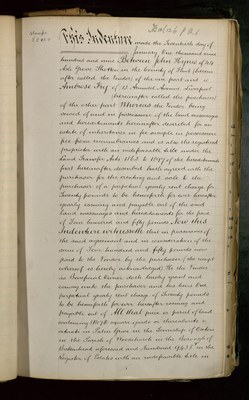 This Indenture made the Twentieth day of
January One thousand nine
hundred and nine Between John Rogers of 24
Ash Grove in the County of
after called the Vendor) of the one part and
Ambrose of 13 Liverpool
(hereinafter called the purchaser)
of the other part Whereas the Vendor being
seized of and in possession of the land messuages
and hereditaments hereinafter described for an
estate of inheritance in fee simple in possession
free from incumbrances and is also the registered
proprietor with an indefeasible title under the
Land Transfer Acts 1875 & 1897 of the hereditaments
first hereinafter described hath agreed with the
purchaser for the creating and sale to the
purchaser of a perpetual yearly rent charge for
Twenty pounds to be henceforth for ever hereafter
yearly issuing and payable out of the said
land messuages and hereditaments for the price
of Four hundred and fifty pounds Now this
Indenture witnesseth that in pursuance of
the said agreement and in consideration of the
sum of Four hundred and fifty pounds now
paid to the Vendor by the purchaser (the receipt
whereof is hereby acknowledged) He the Vendor
as Beneficial Owner doth hereby grant and
convey unto the purchaser and his heirs One
perpetual yearly rent charge of Twenty pounds
to be henceforth for ever hereafter issuing and
payable out of All that piece or parcel of land
containing square yards or thereabouts
situate in Palm Grove in the Township of Oxton
in the Parish of Woodchurch in the Borough of
Birkenhead aforesaid and numbered on the
Register of Estates with an indefeasible title in